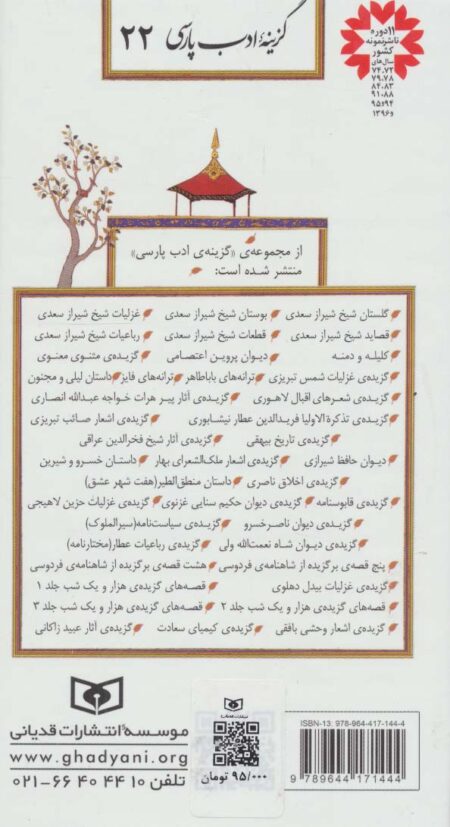 گزینهٔ ادب پارسی ۲۲
۱۱ دوره
ناشر نمونه
کشور
سال‌های
۷۴،۷۲
۷۹،۷۸
۸۴،۸۳
۹۱،۸۸
۹۴و۹۵
و۱۳۹۶
از مجموعه‌ی «گزینه‌ی ادب پارسی»
منتشر شده است:
گلستان شیخ شیراز سعدی بوستان شیخ شیراز سعدی غزلیات شیخ شیراز سعدی
قصاید شیخ شیراز سعدی قطعات شیخ شیراز سعدی رباعیات شیخ شیراز سعدی
کلیله و دمنه دیوان پروین اعتصامی گزیده‌ی مثنوی معنوی
گزیده‌ی غزلیات شمس تبریزی ترانه‌های باباطاهر ترانه‌های فایز داستان لیلی و مجنون
گزیده‌ی شعرهای اقبال لاهوری گزیده‌ی آثار پیر هرات خواجه عبدالله انصاری
گزیده‌ی تذکرة‌الاولیا فریدالدین عطار نیشابوری گزیده‌ی اشعار صائب تبریزی
گزیده‌ی تاریخ بیهقی گزیده‌ی آثار شیخ فخرالدین عراقی
دیوان حافظ شیرازی گزیده‌ی اشعار ملک‌الشعرای بهار داستان خسرو و شیرین
گزیده‌ی اخلاق ناصری داستان منطق‌الطیر(هفت شهر عشق)
گزیده‌ی قابوسنامه گزیده‌ی دیوان حکیم سنایی غزنوی گزیده‌ی غزلیات حزین لاهیجی
گزیده‌ی دیوان ناصرخسرو گزیده‌ی سیاست‌نامه(سیرالملوک)
گزیده‌ی دیوان شاه نعمت‌الله ولی گزیده‌ی رباعیات عطار(مختارنامه)
پنج قصه‌ی برگزیده از شاهنامه‌ی فردوسی هشت قصه‌ی برگزیده از شاهنامه‌ی فردوسی
گزیده‌ی غزلیات بیدل دهلوی قصه‌های گزیده‌ی هزار و یک شب جلد ۱
قصه‌های گزیده‌ی هزار و یک شب جلد ۲ قصه‌های گزیده‌ی هزار و یک شب جلد ۳
گزیده‌ی اشعار وحشی بافقی گزیده‌ی کیمیای سعادت گزیده‌ی آثار عبید زاکانی
موسسهٔ انتشارات قدیانی
www.ghadyani.org
تلفن ۱۰ ۴۴ ۴۰ ۶۶-۰۲۱
۹۵/۰۰۰ تومان
ISBN-13: 978-964-417-144-4
9 789644 171444